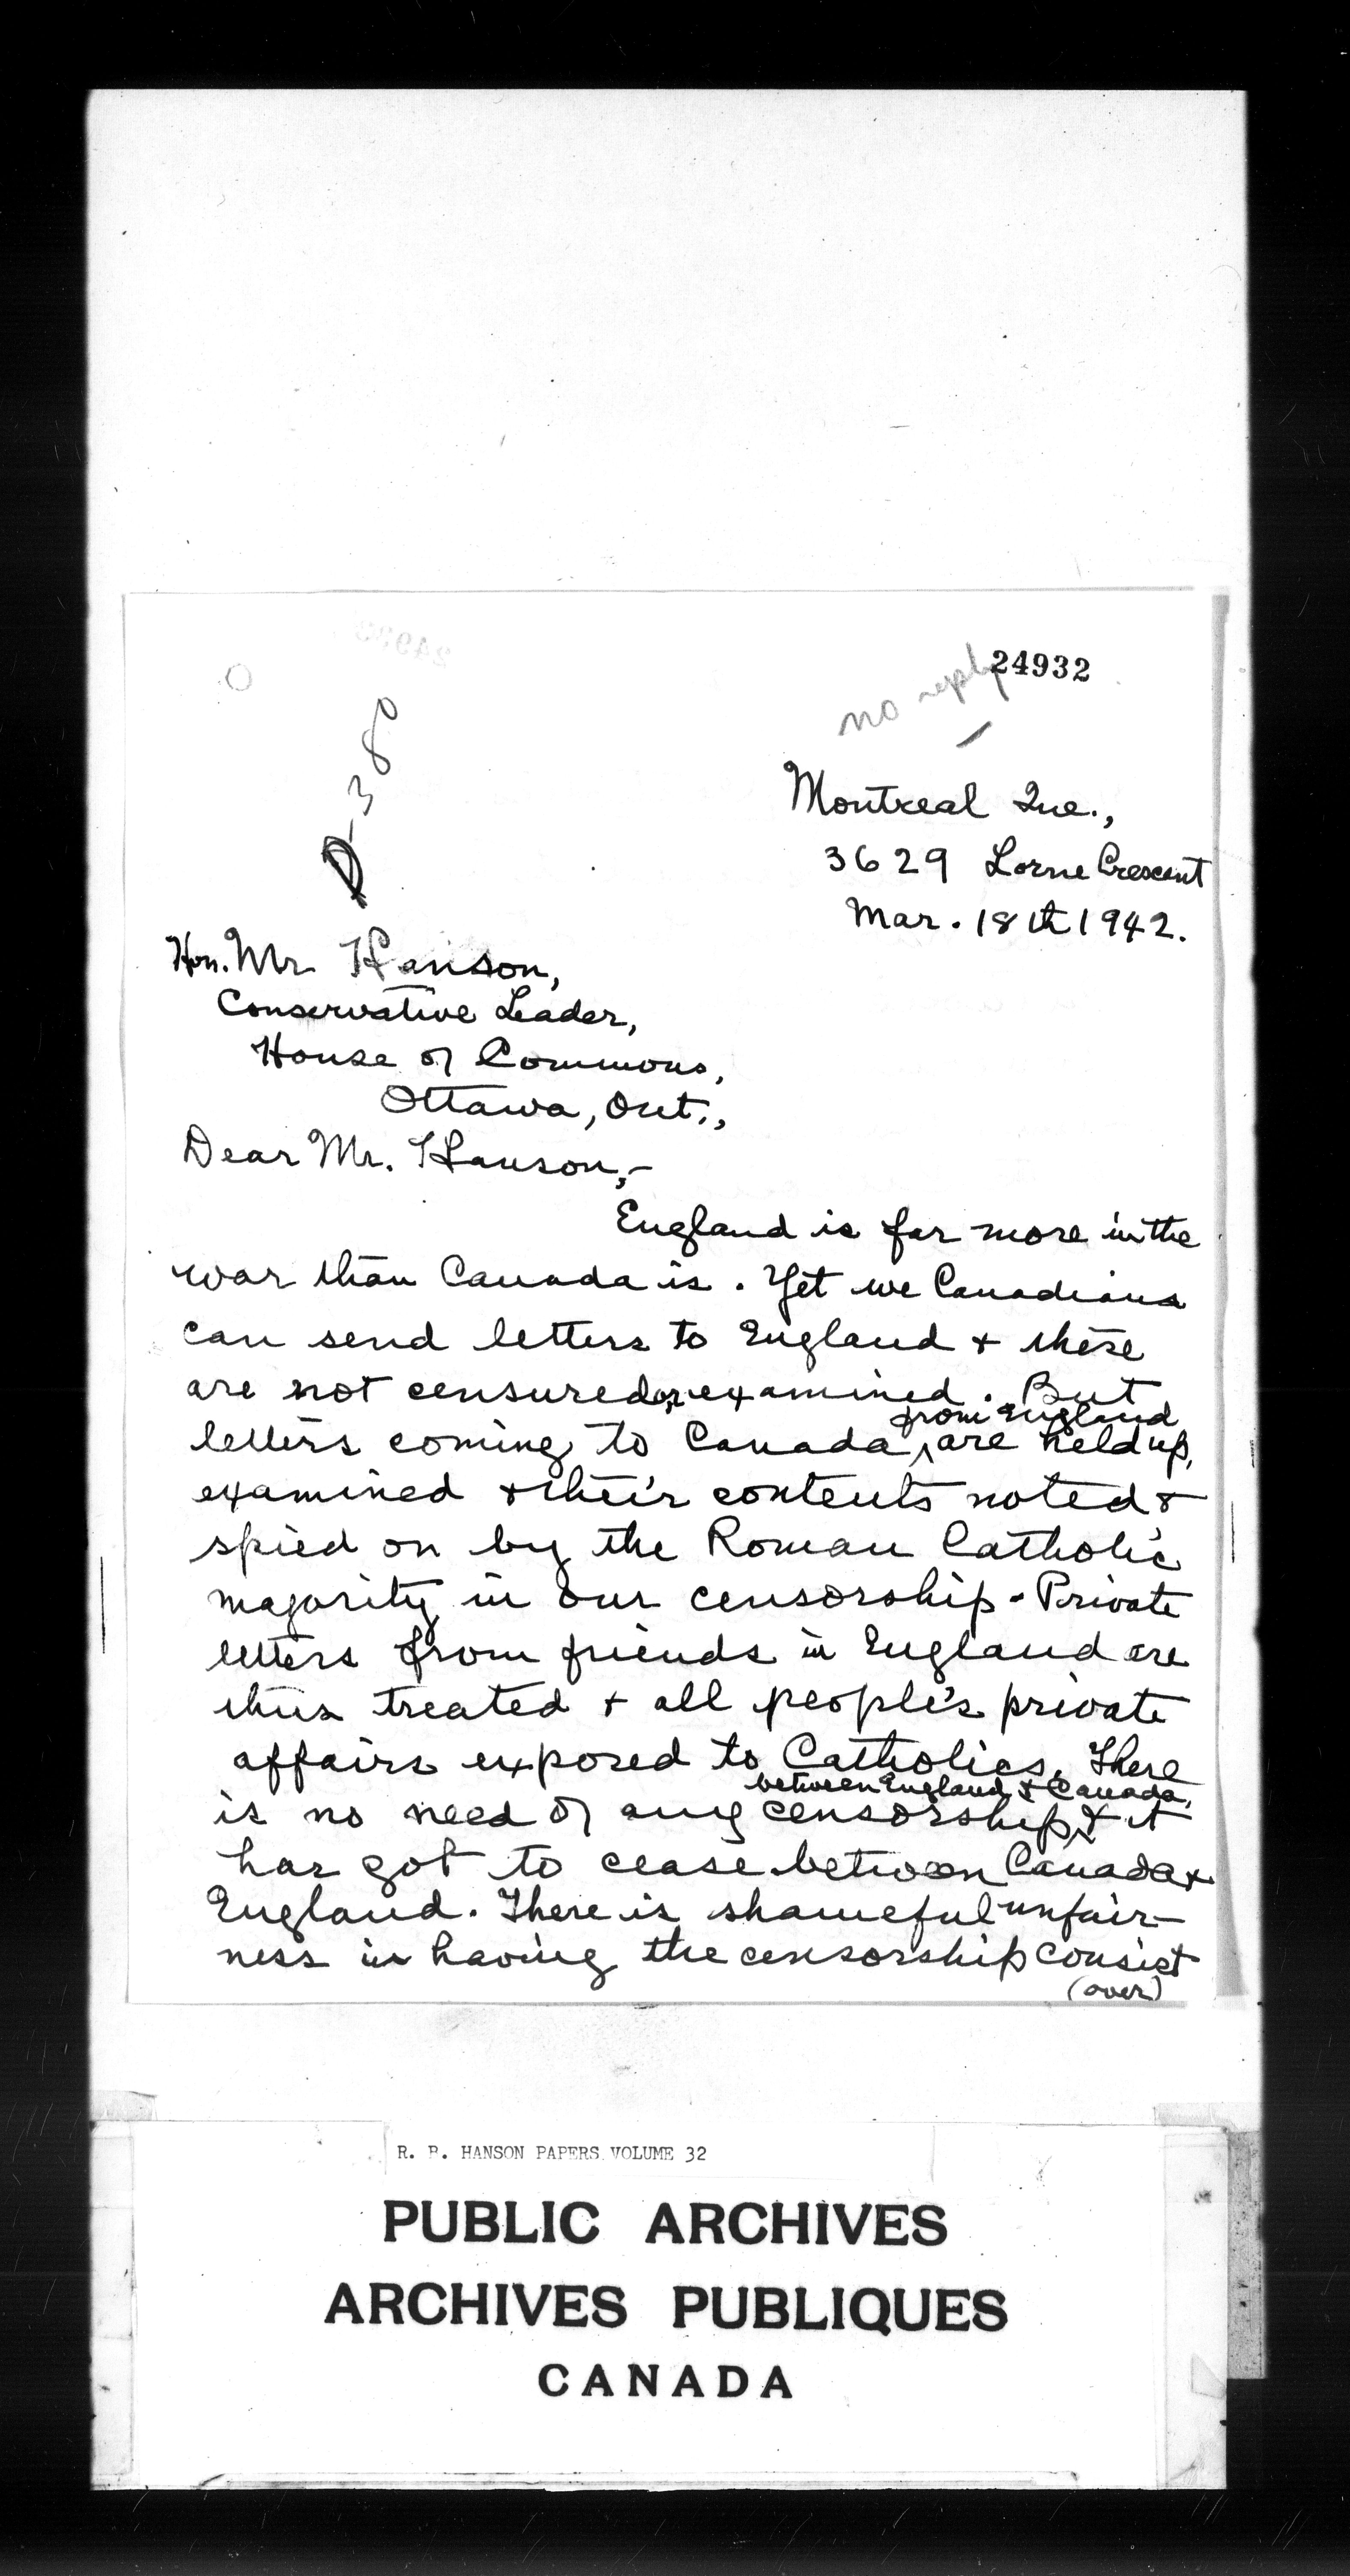 24932
no reply
D-380
Montreal Que.,
3629 Lorne Crescent
Mar. 18th 1942.
Hon. Mr. Hanson,
Conservative Leader,
House of Commons,
Ottawa, Ont.,
Dear Mr. Hanson,-
England is far more in the
war than Canada is. Yet we Canadians
can send letters to England & these
are not censured or examined. But
from England
letters coming to Canada ^ are held up,
examined & their contents noted &
spied on by the Roman Catholic
majority in our censorship. Private
letters from friends in England are
thus treated & all people's private
affairs exposed to Catholics. There
between England & Canada,
is no need of any censorship ^ & it
has got to cease between Canada &
England. There is shameful unfair-
ness in having the censorship consist
(over)
R. B. HANSON PAPERS VOLUME 32
PUBLIC ARCHIVES
ARCHIVES PUBLIQUES
CANADA